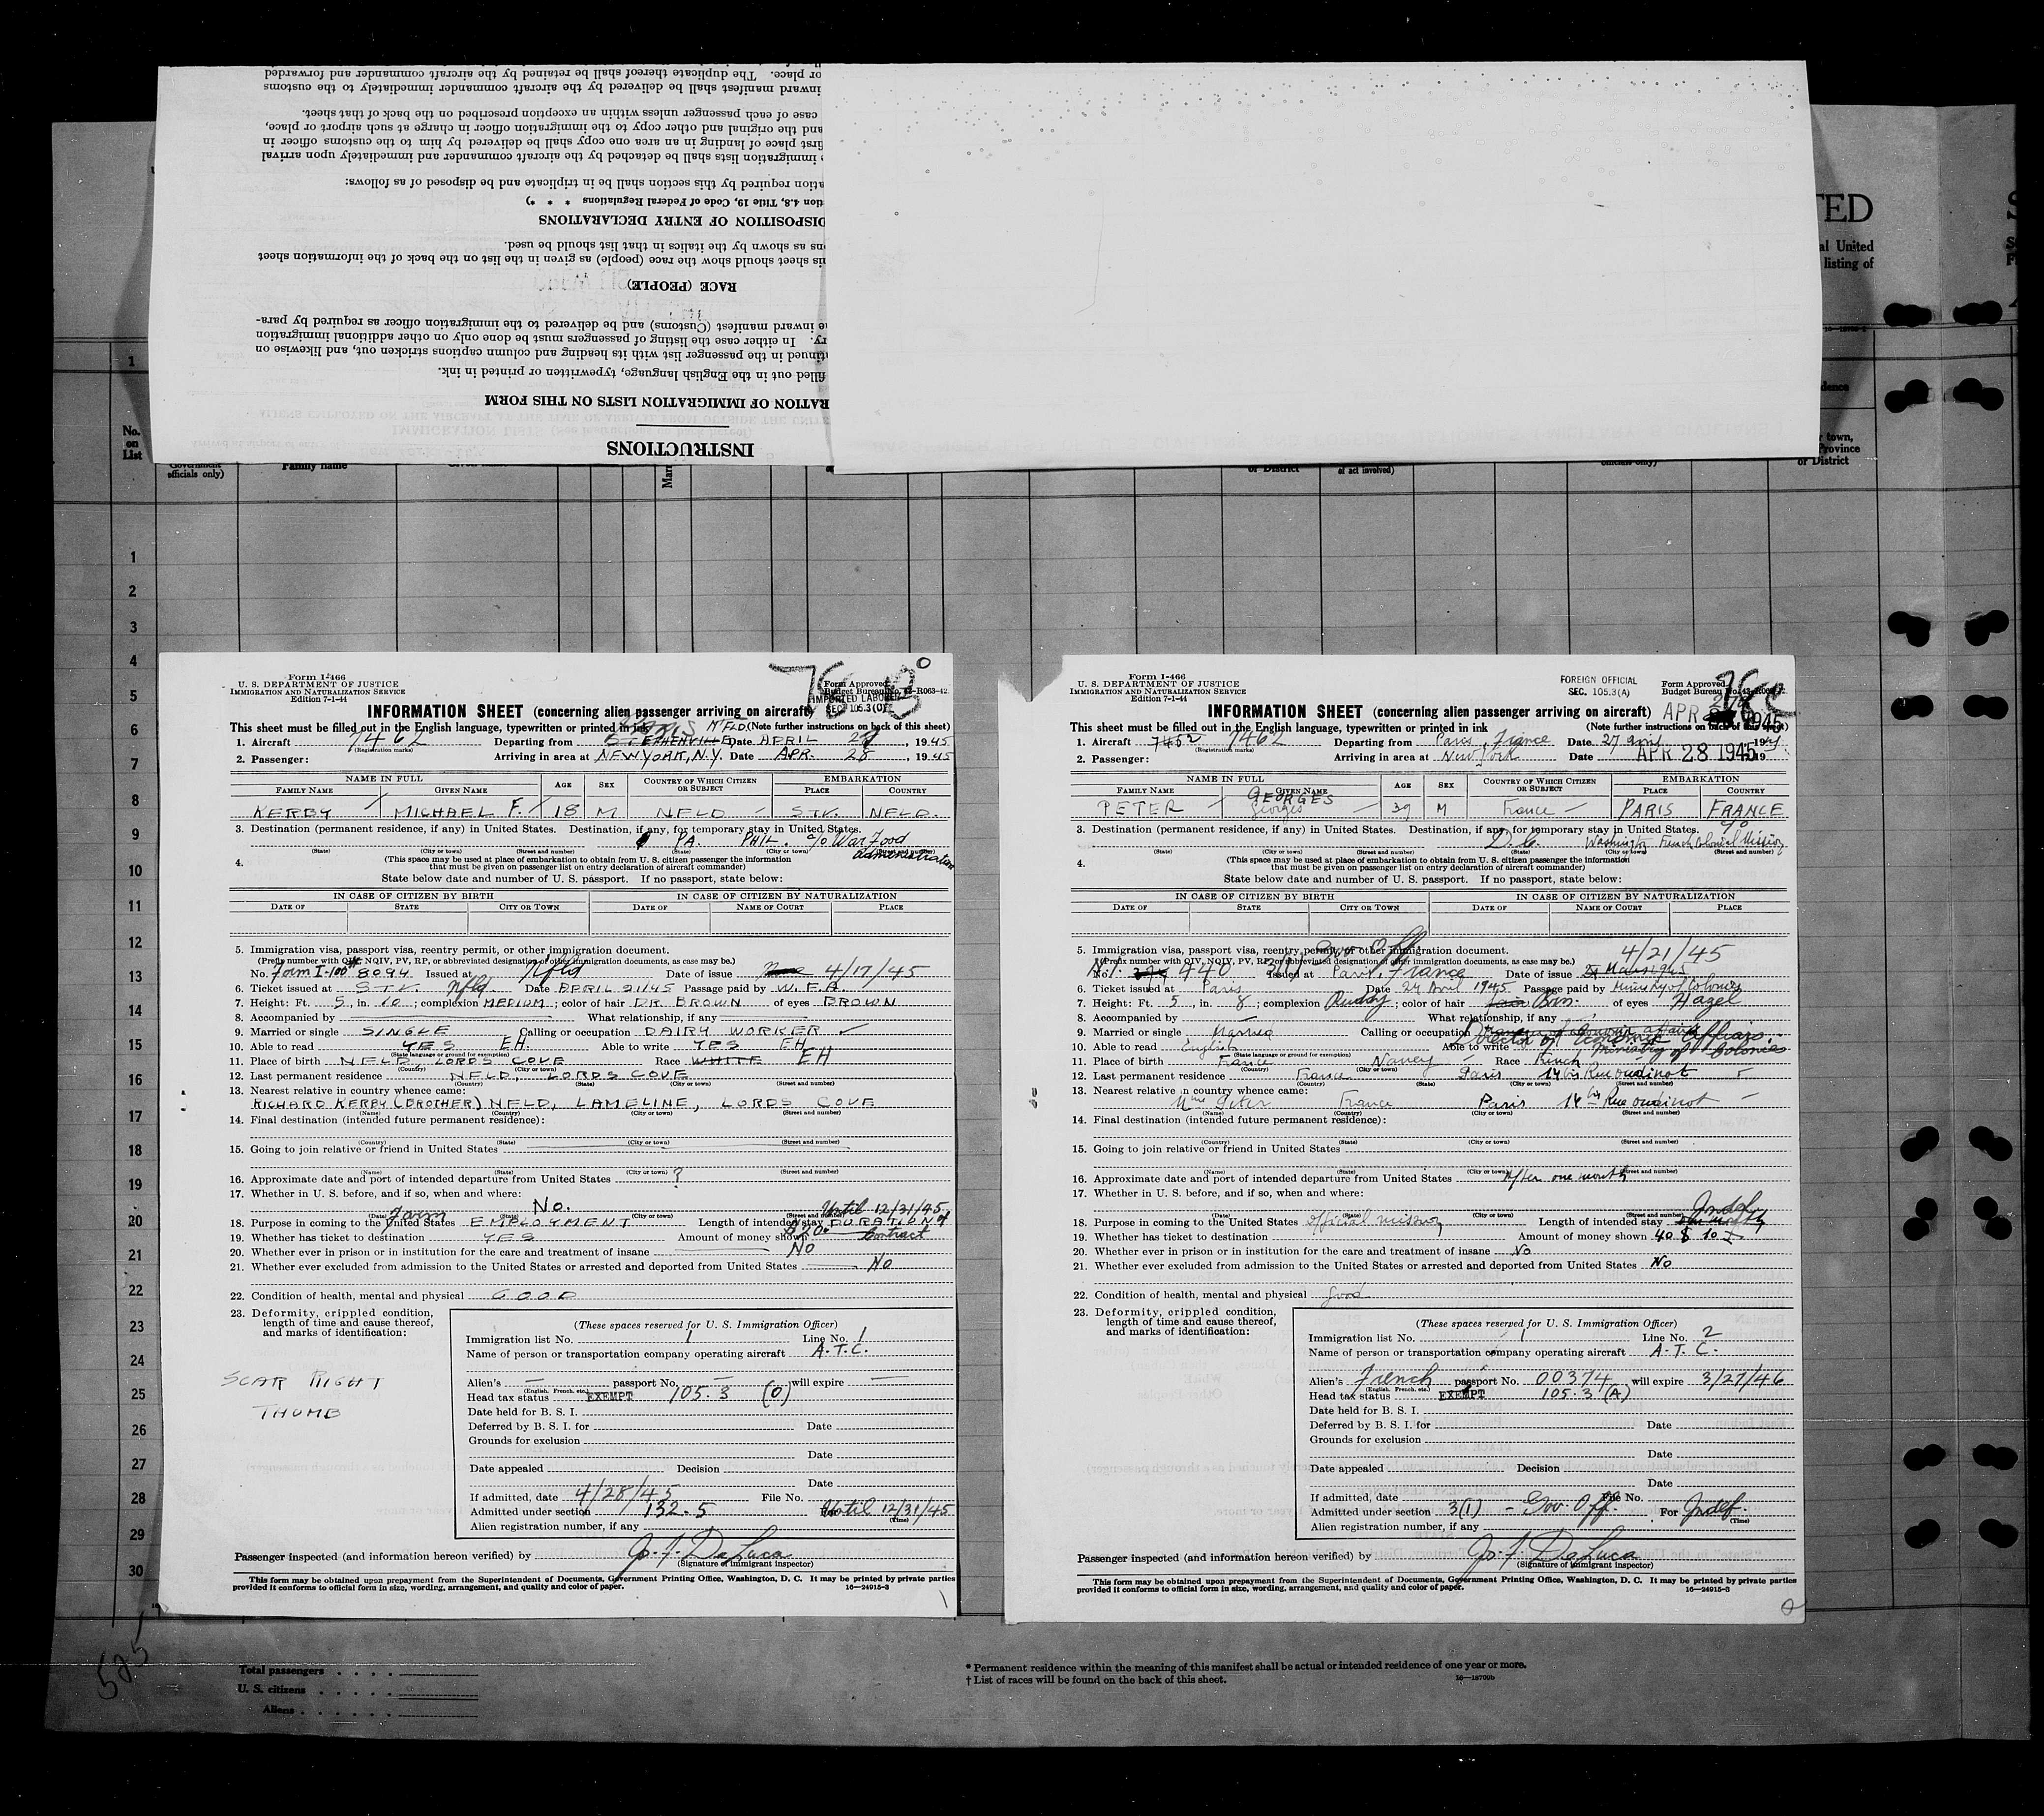 or place. The duplicate thereof shall be retained by the aircraft commander and forwarded
inward manifest shall be delivered by the aircraft commander immediately to the customs
case of each passenger unless within an exception prescribed on the back of that sheet.
and the original and other copy to the immigration officer in charge at such airport or place,
first place of landing in an area one copy shall be delivered by him to the customs officer in
immigration lists shall be detached by the aircraft commander and immediately upon arrival
ation required by this section shall be in triplicate and be disposed of as follows:
tion 4.8, Title 19, Code of Federal Regulations * * *)
DISPOSITION OF ENTRY DECLARATIONS
ns as shown by the italics in that list should be used.
is sheet should show the race (people) as given in the list on the back of the information sheet
RACE (PEOPLE)
e inward manifest (Customs) and be delivered to the immigration officer as required by para-
ry. In either case the listing of passengers must be done only on other additional immigration
tinued in the passenger list with its heading and column captions stricken out, and likewise on
filled out in the English language, typewritten or printed in ink.
RATION OF IMMIGRATION LISTS ON THIS FORM
INSTRUCTIONS
TED
al United
listing of
No. on List
officials only)
Family name
or District
of act involved)
town,
Province
or District
1
2
3
4
5
6
7
8
9
10
11
12
13
14
15
16
17
18
19
20
21
22
23
24
25
26
27
28
29
30
Form I-466
U. S. DEPARTMENT OF JUSTICE
IMMIGRATION AND NATURALIZATION SERVICE
Edition 7-1-44
Form Approved
Budget Bureau No. 43-R063-42
IMPORTED LABORER
SEC 105.3 (O)
INFORMATION SHEET (concerning alien passenger arriving on aircraft)
This sheet must be filled out in the English language, typewritten or printed in ink (Note further instructions on back of this sheet)
1. Aircraft 7462 Departing from STEPHENVILLE NFLD. Date APRIL 27, 1945
(Registration marks)
2. Passenger: Arriving in area at NEW YORK, N.Y. Date APR. 28, 1945
NAME IN FULL AGE SEX COUNTRY OF WHICH CITIZEN OR SUBJECT EMBARKATION
FAMILY NAME GIVEN NAME PLACE COUNTRY
KERBY MICHAEL F. 18 M NFLD S.T.V. NFLD.
3. Destination (permanent residence, if any) in United States. Destination, if any, for temporary stay in United States.
PA. PHIL. c/o War Food Administration
(State) (City or town) (Street and number) (State) (City or town) (Street and number)
4. (This space may be used at place of embarkation to obtain from U. S. citizen passenger the information
that must be given on passenger list on entry declaration of aircraft commander)
State below date and number of U. S. passport. If no passport, state below:
IN CASE OF CITIZEN BY BIRTH IN CASE OF CITIZEN BY NATURALIZATION
DATE OF STATE CITY OR TOWN DATE OF NAME OF COURT PLACE
5. Immigration visa, passport visa, reentry permit, or other immigration document.
(Prefix number with QIV, NQIV, PV, RP, or abbreviated designation of other immigration documents, as case may be.)
No. Form I-100 # 8094 Issued at Nfld Date of issue 4/17/45
6. Ticket issued at S.T.V. Nfld. Date APRIL 21/45 Passage paid by W.F.A.
7. Height: Ft. 5, in. 10; complexion MEDIUM; color of hair DR. BROWN of eyes BROWN
8. Accompanied by What relationship, if any
9. Married or single SINGLE Calling or occupation DAIRY WORKER
10. Able to read YES EH. Able to write YES EH
(State language or ground for exemption)
11. Place of birth NFLD LORDS COVE Race WHITE EH
(Country) (City or town)
12. Last permanent residence NFLD, LORDS COVE
(Country) (State) (City or town) (Street and number)
13. Nearest relative in country whence came:
RICHARD KERBY (BROTHER) NFLD, LAMELINE, LORDS COVE
(Name) (Country) (City or town) (Street and number)
14. Final destination (intended future permanent residence):
(Country) (State) (City or town) (Street and number)
15. Going to join relative or friend in United States
(Name) (State) (City or town) (Street and number)
16. Approximate date and port of intended departure from United States ?
17. Whether in U. S. before, and if so, when and where:
No.
(Date) (State) (City or town) (Street and number)
18. Purpose in coming to the United States Farm EMPLOYMENT Length of intended stay Until 12/31/45 DURATION of Contract
19. Whether has ticket to destination YES Amount of money shown
20. Whether ever in prison or in institution for the care and treatment of insane NO
21. Whether ever excluded from admission to the United States or arrested and deported from United States NO
22. Condition of health, mental and physical GOOD
23. Deformity, crippled condition,
length of time and cause thereof,
and marks of identification:
SCAR RIGHT
THUMB
(These spaces reserved for U. S. Immigration Officer)
Immigration list No. 1 Line No. 1
Name of person or transportation company operating aircraft A.T.C.
Alien's — passport No. — will expire —
(English, French, etc.)
Head tax status EXEMPT 105.3 (O)
Date held for B. S. I.
Deferred by B. S. I. for Date
Grounds for exclusion
Date
Date appealed Decision
Date
If admitted, date 4/28/45 File No.
Admitted under section 132.5 Until 12/31/45
(Time)
Alien registration number, if any
Passenger inspected (and information hereon verified) by Jo. F. DeLuca
(Signature of immigrant inspector)
This form may be obtained upon prepayment from the Superintendent of Documents, Government Printing Office, Washington, D. C. It may be printed by private parties
provided it conforms to official form in size, wording, arrangement, and quality and color of paper. 16—24915-3
Form I-466
U. S. DEPARTMENT OF JUSTICE
IMMIGRATION AND NATURALIZATION SERVICE
Edition 7-1-44
FOREIGN OFFICIAL
SEC. 105.3(A)
Form Approved
Budget Bureau No. 43-R063-42
INFORMATION SHEET (concerning alien passenger arriving on aircraft)
APR 1945
This sheet must be filled out in the English language, typewritten or printed in ink (Note further instructions on back of this sheet)
1. Aircraft 7452 7462 Departing from Paris, France Date 27 april 19
(Registration marks)
2. Passenger: Arriving in area at New York Date APR 28 1945
NAME IN FULL AGE SEX COUNTRY OF WHICH CITIZEN OR SUBJECT EMBARKATION
FAMILY NAME GIVEN NAME PLACE COUNTRY
PETER GEORGES Georges 39 M France PARIS FRANCE
3. Destination (permanent residence, if any) in United States. Destination, if any, for temporary stay in United States.
D.C. Washington c/o French Colonial Mission
(State) (City or town) (Street and number) (State) (City or town) (Street and number)
4. (This space may be used at place of embarkation to obtain from U. S. citizen passenger the information
that must be given on passenger list on entry declaration of aircraft commander)
State below date and number of U. S. passport. If no passport, state below:
IN CASE OF CITIZEN BY BIRTH IN CASE OF CITIZEN BY NATURALIZATION
DATE OF STATE CITY OR TOWN DATE OF NAME OF COURT PLACE
5. Immigration visa, passport visa, reentry permit, or other immigration document. 4/21/45
(Prefix number with QIV, NQIV, PV, RP, or abbreviated designation of other immigration documents, as case may be.)
No. 440 3(1) Gov. Off. Issued at Paris, France Date of issue
6. Ticket issued at Paris Date 24 April 1945 Passage paid by Ministry of Colonies
7. Height: Ft. 5, in. 8; complexion Ruddy; color of hair Brn. of eyes Hazel
8. Accompanied by What relationship, if any
9. Married or single Married Calling or occupation Director of Economic Affairs. Ministry of Colonies
10. Able to read English Able to write
(State language or ground for exemption)
11. Place of birth France Nancy Race French
(Country) (City or town)
12. Last permanent residence France Paris 14 bis Rue oudinot
(Country) (State) (City or town) (Street and number)
13. Nearest relative in country whence came:
Mme Peter France Paris 14 bis Rue oudinot
(Name) (Country) (City or town) (Street and number)
14. Final destination (intended future permanent residence):
(Country) (State) (City or town) (Street and number)
15. Going to join relative or friend in United States
(Name) (State) (City or town) (Street and number)
16. Approximate date and port of intended departure from United States After one month
17. Whether in U. S. before, and if so, when and where:
(Date) (State) (City or town) (Street and number)
18. Purpose in coming to the United States official mission Length of intended stay Indef.
19. Whether has ticket to destination Amount of money shown 40 $ 10 £
20. Whether ever in prison or in institution for the care and treatment of insane No
21. Whether ever excluded from admission to the United States or arrested and deported from United States No
22. Condition of health, mental and physical good
23. Deformity, crippled condition,
length of time and cause thereof,
and marks of identification:
(These spaces reserved for U. S. Immigration Officer)
Immigration list No. 1 Line No. 2
Name of person or transportation company operating aircraft A.T.C.
Alien's French passport No. 00374 will expire 3/27/46
(English, French, etc.)
Head tax status EXEMPT 105.3 (A)
Date held for B. S. I.
Deferred by B. S. I. for Date
Grounds for exclusion
Date
Date appealed Decision
Date
If admitted, date File No.
Admitted under section 3(1) - Gov. Off. For Indef.
(Time)
Alien registration number, if any
Passenger inspected (and information hereon verified) by Jo. F. DeLuca
(Signature of immigrant inspector)
This form may be obtained upon prepayment from the Superintendent of Documents, Government Printing Office, Washington, D. C. It may be printed by private parties
provided it conforms to official form in size, wording, arrangement, and quality and color of paper. 16—24915-3
2
585
Total passengers
U. S. citizens
Aliens
* Permanent residence within the meaning of this manifest shall be actual or intended residence of one year or more.
† List of races will be found on the back of this sheet. 16—18709b